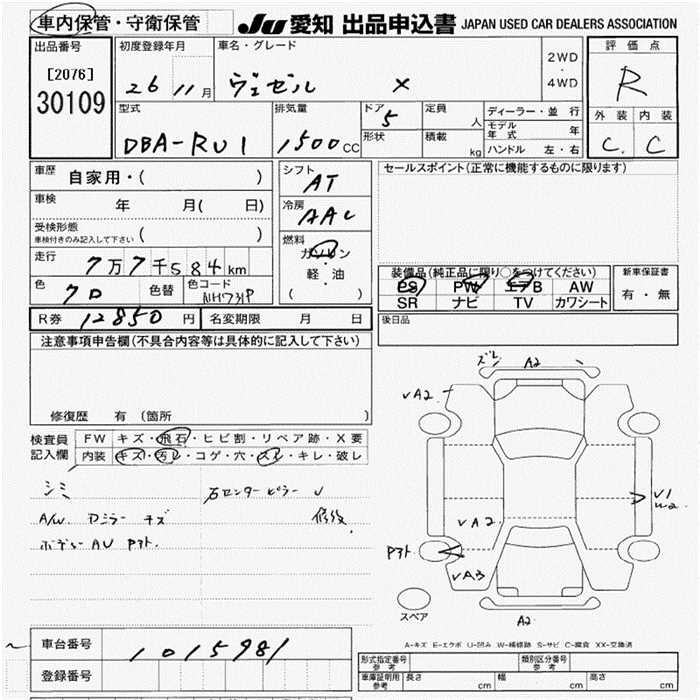 車内保管・守衛保管
JU 愛知 出品申込書 JAPAN USED CAR DEALERS ASSOCIATION
出品番号
[2076]
30109
初度登録年月
26 11月
車名・グレード
ヴェゼル X
2WD
・
4WD
評価点
R
外装 内装
C. C
型式
DBA-RU1
排気量
1500CC
ドア
5
形状
定員
人
積載
kg
ディーラー・並行
モデル年式 年
ハンドル 左・右
車歴
自家用・( )
車検
年 月( 日)
受検形態
車検付きのみ記入して下さい ( )
走行
7万7千584km
色
クロ
色替
色コード
NH731P
シフト
AT
冷房
AAC
燃料
ガソリン
・
軽・油
( )
セールスポイント(正常に機能するものに限ります)
装備品(純正品に限り○をつけてください)
PS PW エアB AW
SR ナビ TV カワシート
新車保証書
有・無
R券 12850円
名変期限 月 日
後日品
注意事項申告欄(不具合内容等は具体的に記入して下さい)
修復歴 有(箇所 )
検査員
記入欄
FW キズ・飛石・ヒビ割・リペア跡・X要
内装 キズ・汚レ・コゲ・穴・スレ・キレ・破レ
シミ
右センターピラー U
A/W. ロミラー キズ 修後
ボデー AU P外.
ズレ A2
A2
A2
V1
W2
P外
A3
A2
スペア
A-キズ E-エクボ U-凹み W-補修跡 S-サビ C-腐食 XX-交換済
車台番号
1015981
登録番号
形式指定番号
参考
類別区分番号
参考
車庫証明用
参考
長さ cm
幅 cm
高さ cm